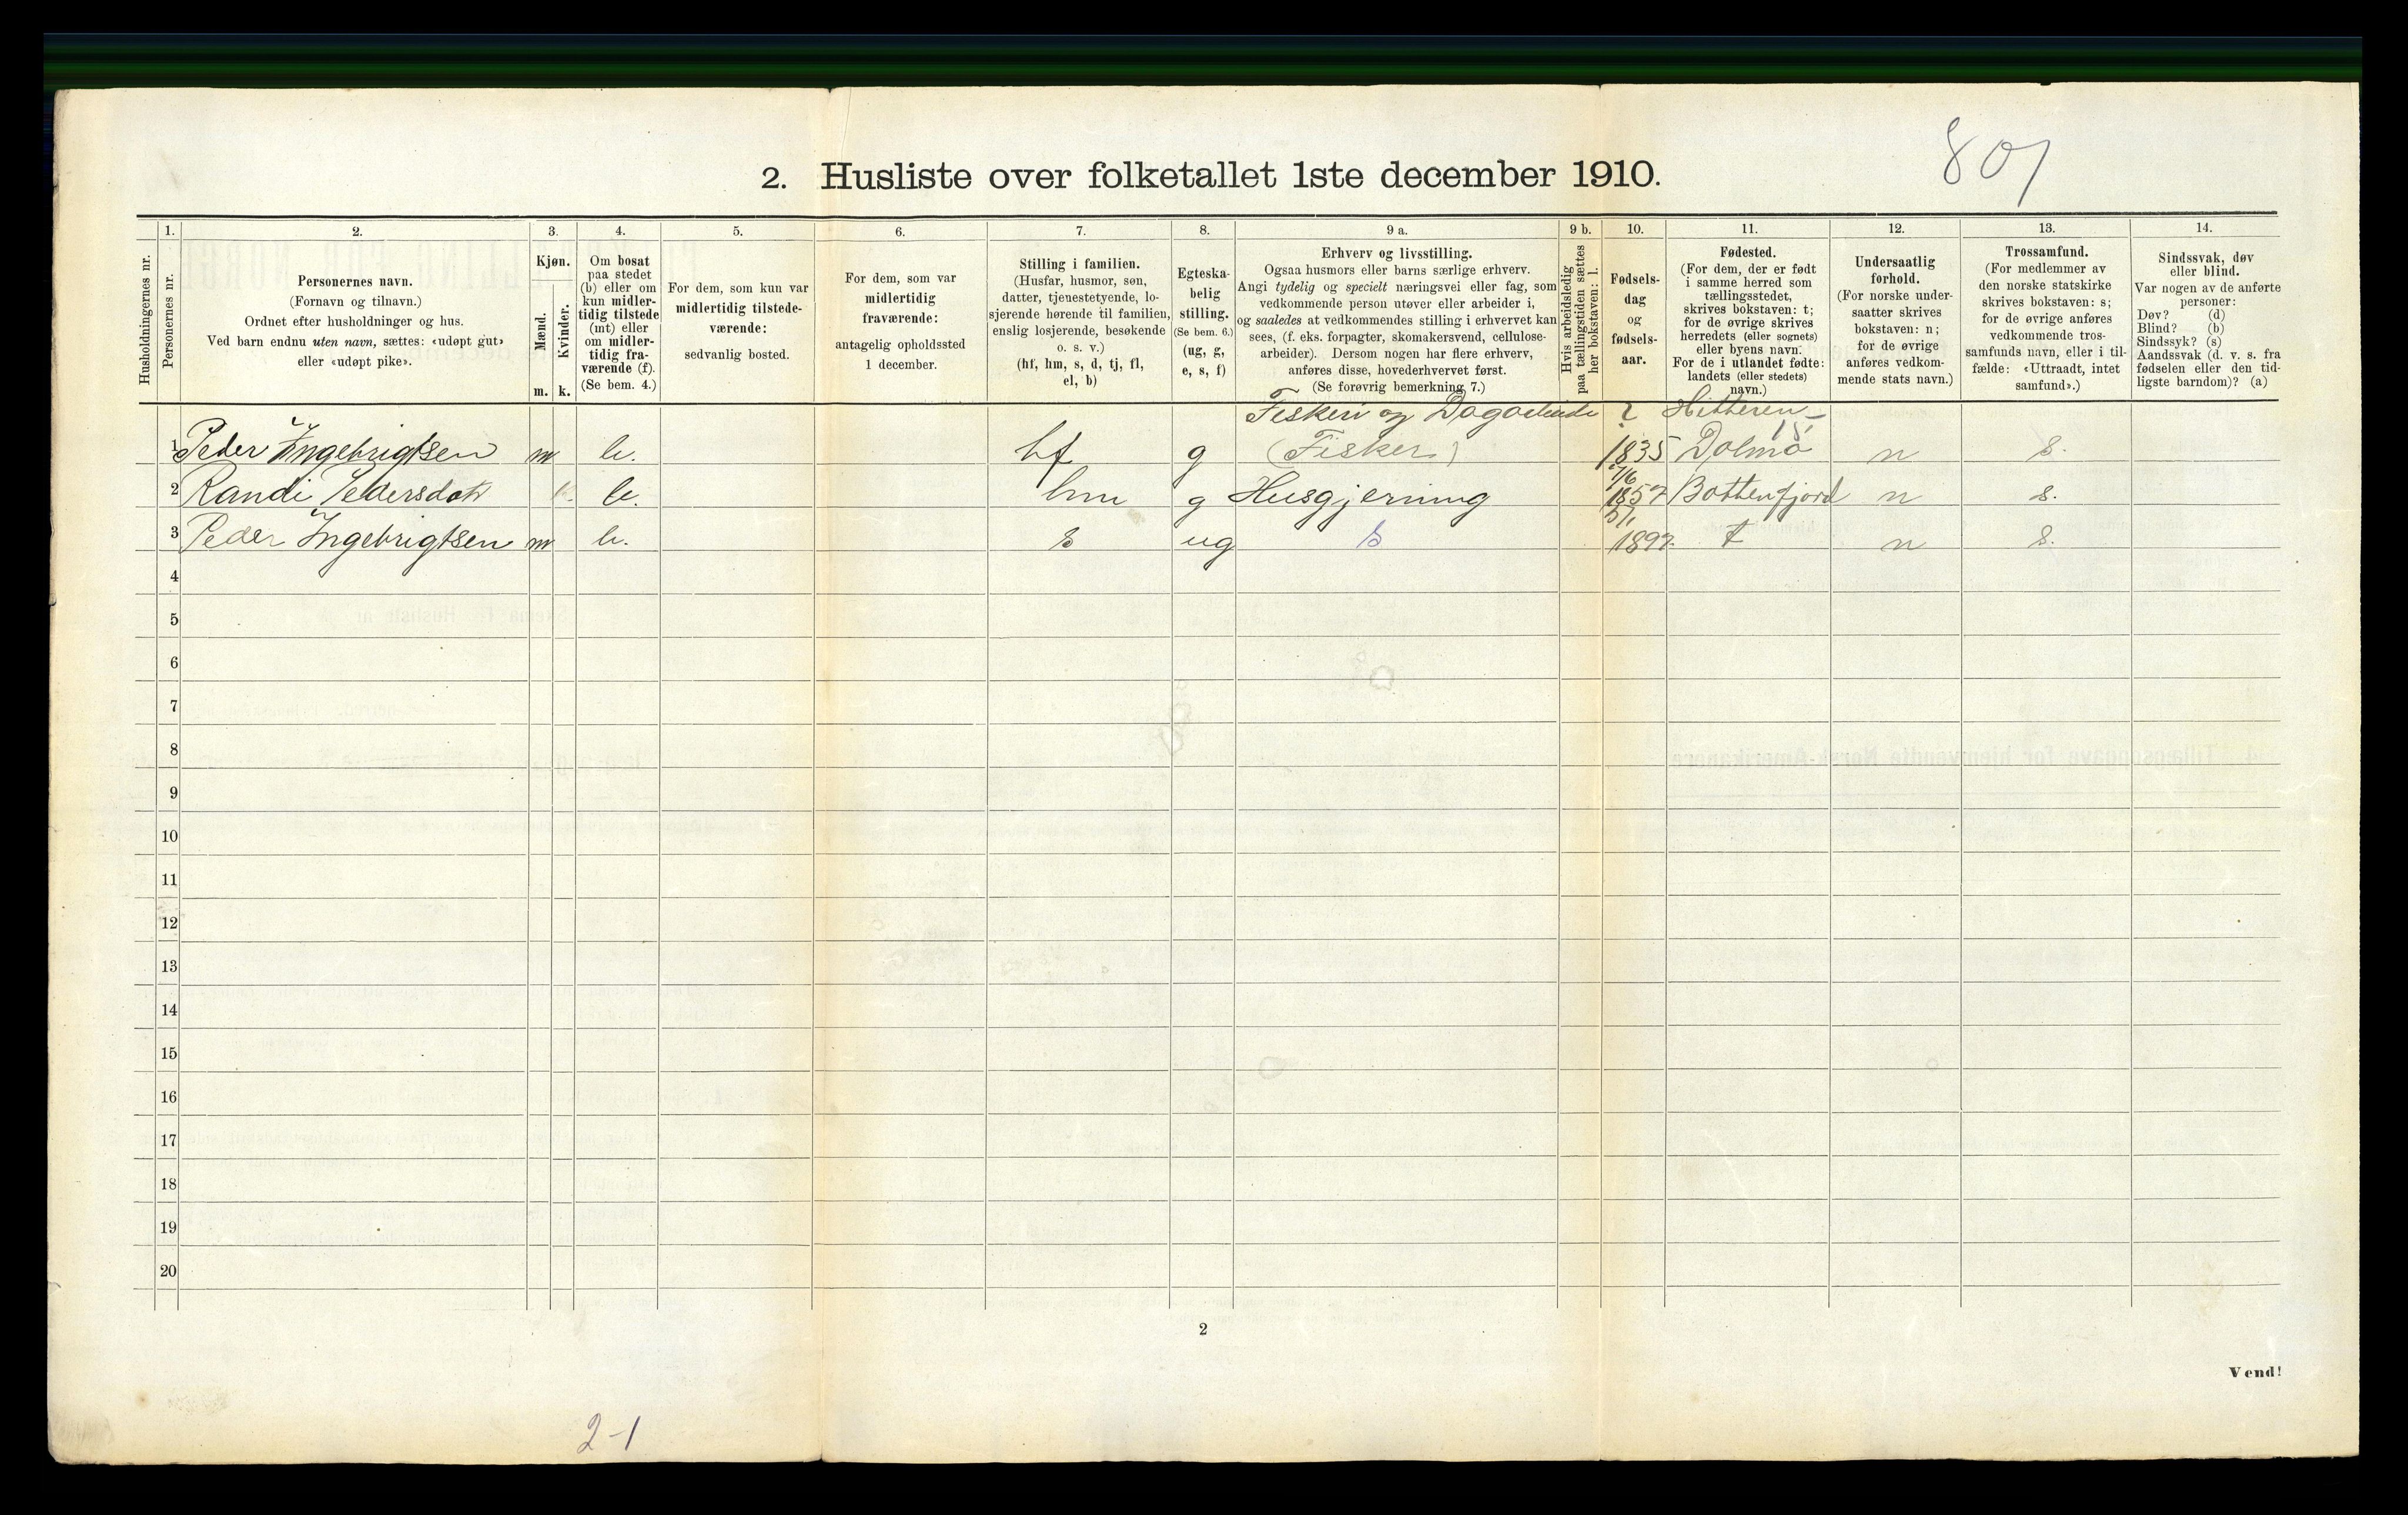 801
2. Husliste over folketallet 1ste december 1910.
Husholdningernes nr.
1.
Personernes nr.
2.
Personernes navn.
(Fornavn og tilnavn.)
Ordnet efter husholdninger og hus.
Ved barn endnu uten navn, sættes: «udøpt gut»
eller «udøpt pike».
3.
Kjøn.
Mænd.
Kvinder.
m. k.
4.
Om bosat
paa stedet
(b) eller om
kun midler-
tidig tilstede
(mt) eller
om midler-
tidig fra-
værende (f).
(Se bem. 4.)
5.
For dem, som kun var
midlertidig tilstede-
værende:
sedvanlig bosted.
6.
For dem, som var
midlertidig
fraværende:
antagelig opholdssted
1 december.
7.
Stilling i familien.
(Husfar, husmor, søn,
datter, tjenestetyende, lo-
sjerende hørende til familien,
enslig losjerende, besøkende
o. s. v.)
(hf, hm, s, d, tj, fl,
el, b)
8.
Egteska-
belig
stilling.
(Se bem. 6.)
(ug, g,
e, s, f)
9 a.
Erhverv og livsstilling.
Ogsaa husmors eller barns særlige erhverv.
Angi tydelig og specielt næringsvei eller fag, som
vedkommende person utøver eller arbeider i,
og saaledes at vedkommendes stilling i erhvervet kan
sees, (f. eks. forpagter, skomakersvend, cellulose-
arbeider). Dersom nogen har flere erhverv,
anføres disse, hovederhvervet først.
(Se forøvrig bemerkning 7.)
9 b.
Hvis arbeidsledig
paa tællingstiden sættes
her bokstaven: l.
10.
Fødsels-
dag
og
fødsels-
aar.
11.
Fødested.
(For dem, der er født
i samme herred som
tællingsstedet,
skrives bokstaven: t;
for de øvrige skrives
herredets (eller sognets)
eller byens navn.
For de i utlandet fødte:
landets (eller stedets)
navn.)
12.
Undersaatlig
forhold.
(For norske under-
saatter skrives
bokstaven: n;
for de øvrige
anføres vedkom-
mende stats navn.)
13.
Trossamfund.
(For medlemmer av
den norske statskirke
skrives bokstaven: s;
for de øvrige anføres
vedkommende tros-
samfunds navn, eller i til-
fælde: «Uttraadt, intet
samfund».)
14.
Sindssvak, døv
eller blind.
Var nogen av de anførte
personer:
Døv? (d)
Blind? (b)
Sindssyk? (s)
Aandssvak (d. v. s. fra
fødselen eller den tid-
ligste barndom)? (a)
Fiskeri og ? Hitteren
15
1 Peder Ingebrigtsen m b. hf g (Fisker) 1835 Dolmø n s.
2 Randi Pedersdatr k. b. hm g Husgjerning 7/6 1857 Bottenfjord n s.
3 Peder Ingebrigtsen m b. s ug s 1897. t n s.
4
5
6
7
8
9
10
11
12
13
14
15
16
17
18
19
20
2
Vend!
2-1